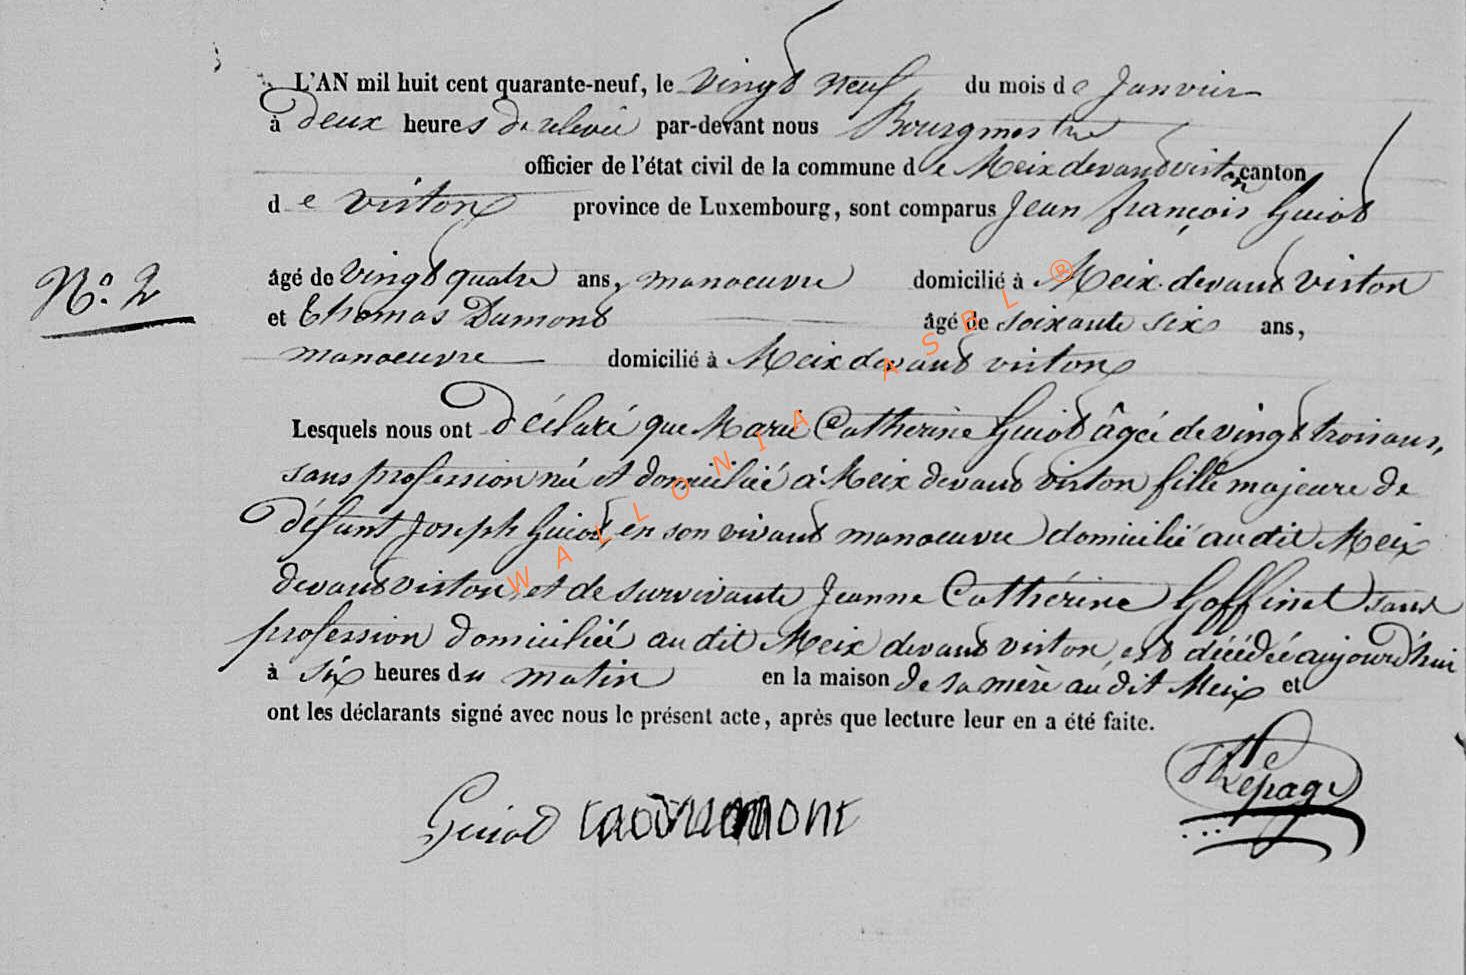 L'AN mil huit cent quarante-neuf, le vingt neuf du mois de Janvier
à deux heures de relevée par-devant nous Bourgmestre
officier de l'état civil de la commune de Meix devant virton canton
de virton province de Luxembourg, sont comparus Jean françois Guiot
âgé de vingt quatre ans, manoeuvre domicilié à Meix devant virton
N.° 2
et Thomas Dumont âgé de soixante six ans,
manoeuvre domicilié à Meix devant virton
Lesquels nous ont déclaré que Marie Catherine Guiot âgée de vingt trois ans,
sans profession née et domiciliée à Meix devant virton fille majeure de
défunt Joseph Guiot, en son vivant manoeuvre domicilié au dit Meix
devant virton, et de survivante Jeanne Cathérine Goffinet sans
profession domiciliée au dit Meix devant virton, est décédée aujourd'hui
à six heures du matin en la maison de sa mère au dit Meix et
ont les déclarants signé avec nous le présent acte, après que lecture leur en a été faite.
Guiot Lepage
WALLONIA ASBL ®